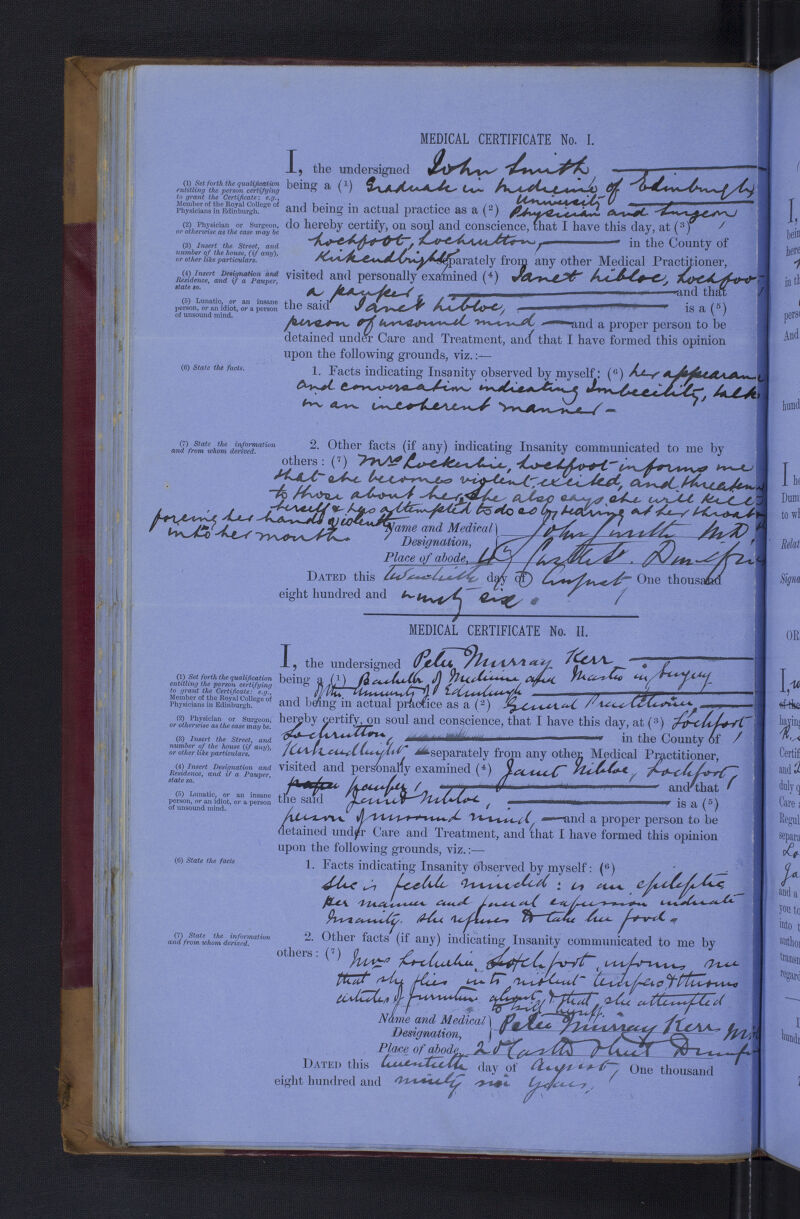 MEDICAL CERTIFICATE No. I.
I, the undersigned John Smith
(1) Set forth the qualification
entitling the person certifying
to grant the Certificate: e.g.,
Member of the Royal College of
Physicians in Edinburgh.
being a (1) Graduate in Medicine of Edinburgh
University
and being in actual practice as a (2) Physician and Surgeon
(2) Physician or Surgeon,
or otherwise as the case may be
do hereby certify, on soul and conscience, that I have this day, at (3)
(3) Insert the Street, and
number of the house, (if any),
or other like particulars.
Lochfoot, Lochrutton, in the County of
Kirkcudbright separately from any other Medical Practitioner,
(4) Insert Designation and
Residence, and if a Pauper,
state so.
visited and personally examined (4) Janet Nibloe, Lochfoot
a pauper and that
(5) Lunatic, or an insane
person, or an idiot, or a person
of unsound mind.
the said Janet Nibloe, is a (5)
person of unsound mind, and a proper person to be
detained under Care and Treatment, and that I have formed this opinion
upon the following grounds, viz.:—
(6) State the facts.
1. Facts indicating Insanity observed by myself: (6) her appearance
and conversation indicating Imbecility, talks
in an incoherent manner -
(7) State the information
and from whom derived.
2. Other facts (if any) indicating Insanity communicated to me by
others: (7) Mrs Lockerbie, Lochfoot informs me
that she becomes violent, excited, and threatens
to those about her, She also says she will kill
herself & has attempted to do so by tearing at her throat &
forcing her hands violently
into her mouth.
Name and Medical
Designation, John Smith MD
Place of abode, Castle St. Dumfries
DATED this twentieth day of August One thousand
eight hundred and ninety six.
MEDICAL CERTIFICATE No. II.
I, the undersigned Peter Murray Kerr
(1) Set forth the qualification
entitling the person certifying
to grant the Certificate: e.g.,
Member of the Royal College of
Physicians in Edinburgh.
being a (1) Bachelor of Medicine and Master in Surgery
of the University of Edinburgh
and being in actual practice as a (2) General Practitioner
(2) Physician or Surgeon,
or otherwise as the case may be.
hereby certify, on soul and conscience, that I have this day, at (3) Lochfoot
(3) Insert the Street, and
number of the house (if any),
or other like particulars.
Lochrutton, in the County of
Kirkcudbright separately from any other Medical Practitioner,
(4) Insert Designation and
Residence, and if a Pauper,
state so.
visited and personally examined (4) Janet Nibloe, Lochfoot,
pauper, and that
(5) Lunatic, or an insane
person, or an idiot, or a person
of unsound mind.
the said Janet Nibloe, is a (5)
person of unsound mind, and a proper person to be
detained under Care and Treatment, and that I have formed this opinion
upon the following grounds, viz.:—
(6) State the facts
1. Facts indicating Insanity observed by myself: (6)
She is feeble minded: is an epileptic
Her manner and facial expression indicate
Insanity. She refuses to take her food.
(7) State the information
and from whom derived.
2. Other facts (if any) indicating Insanity communicated to me by
others: (7) Mrs Lockerbie, Lochfoot, informs me
that she flies into violent tempers & throws
articles of furniture about, & that she attempted
to kill herself.
Name and Medical
Designation, Peter Murray Kerr
Place of abode, Castle Street Dumfries
DATED this twentieth day of August, One thousand
eight hundred and ninety six years.